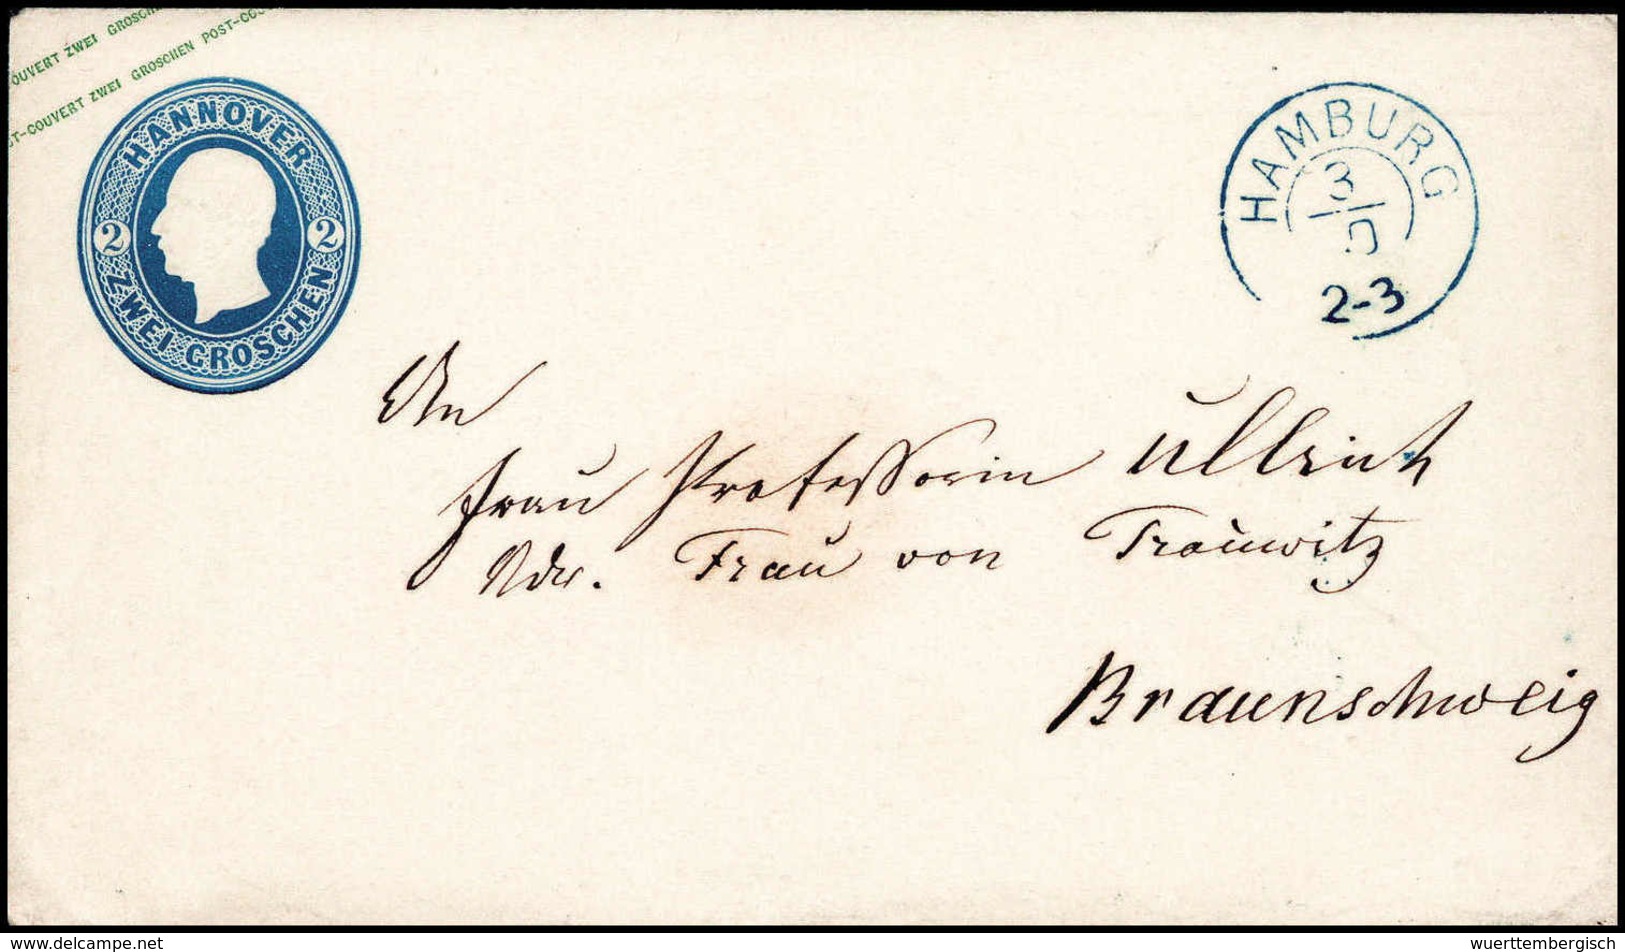 OUVERT ZWEI GROSCHE
ST-COUVERT ZWEI GROSCHEN POST-COU
HANNOVER
2 2
ZWEI GROSCHEN
HAMBURG
3
2-3
An
Frau Professorin Ullrich
Adr. Frau von
Braunschweig
www.delcampe.net
wuerttembergisch